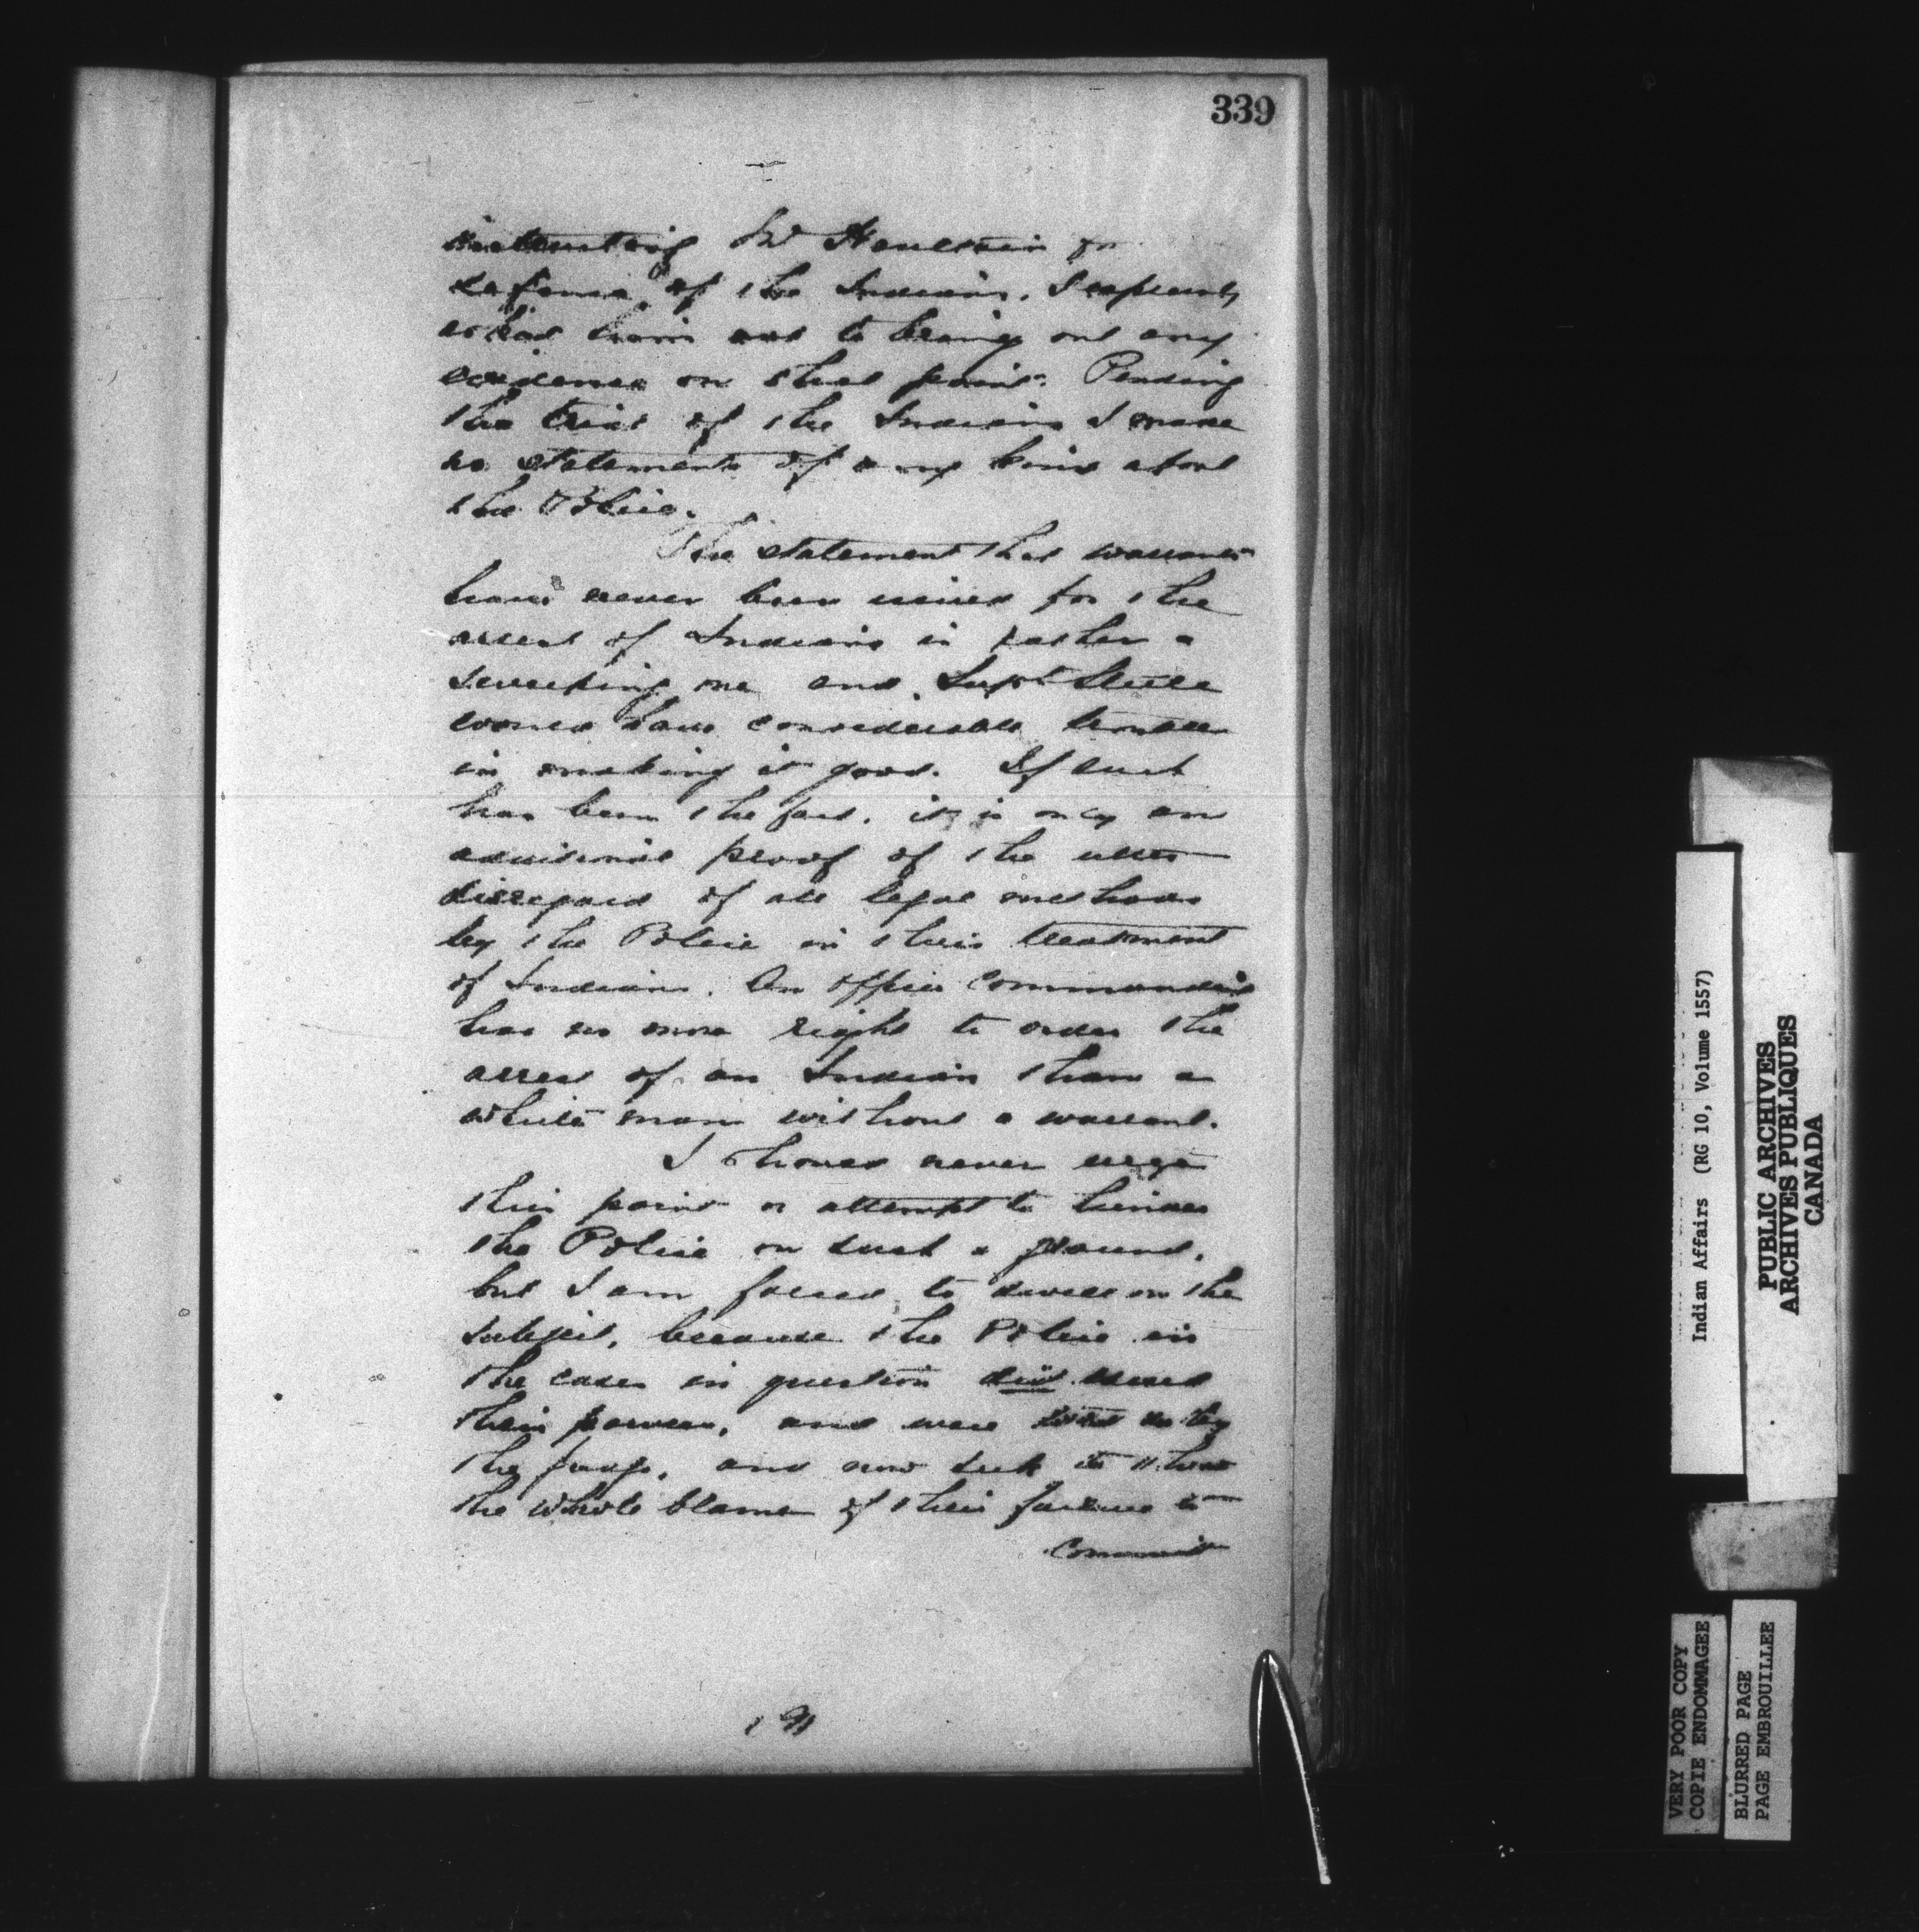 339
instructing Mr Haultain for
defence of the Indians, I expressly
asked him not to bring out any
evidence on that point. Pending
the trial of the Indians I made
no statements of any kind about
the Police.
The statement that warrants
have never been issued for the
arrest of Indians is rather a
sweeping one and Supt Steele
would have considerable trouble
in making it good. If such
has been the fact, it is only an
additional proof of the utter
disregard of all legal methods
by the Police in their treatment
of Indians. An officer commanding
has no more right to order the
arrest of an Indian than a
white man without a warrant.
I should never urge
this point or attempt to hinder
the Police on such a ground,
but I am forced to dwell on the
subject, because the Police in
the cases in question did exceed
their powers, and were told so by
the judge, and now seek to throw
the whole blame of their failure to
commit
Indian Affairs (RG 10, Volume 1557)
PUBLIC ARCHIVES
ARCHIVES PUBLIQUES
CANADA
VERY POOR COPY
COPIE ENDOMMAGEE
BLURRED PAGE
PAGE EMBROUILLEE